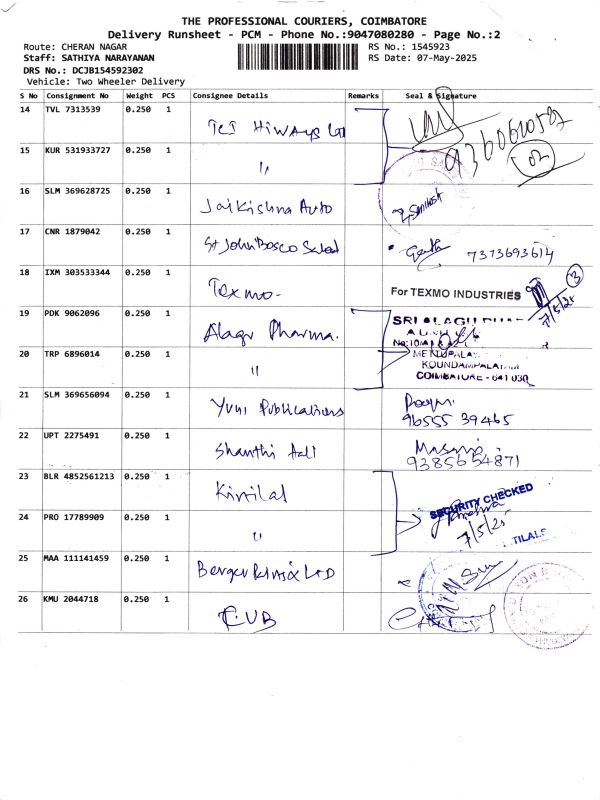 THE PROFESSIONAL COURIERS, COIMBATORE
Delivery Runsheet - PCM - Phone No.:9047080280 - Page No.:2
Route: CHERAN NAGAR RS No.: 1545923
Staff: SATHIYA NARAYANAN RS Date: 07-May-2025
DRS No.: DCJB154592302
Vehicle: Two Wheeler Delivery
S No Consignment No Weight PCS Consignee Details Remarks Seal & Signature
14 TVL 7313539 0.250 1 TCI Hiways
15 KUR 531933727 0.250 1 "
16 SLM 369628725 0.250 1 Jai Kishna Auto Santhosh
17 CNR 1879042 0.250 1 St John Bosco 7373693614
18 IXM 303533344 0.250 1 Texmo- For TEXMO INDUSTRIES 3
7/5/25
19 PDK 9062096 0.250 1 Alagu Pharma.
20 TRP 6896014 0.250 1 "
METTUPALA
KOUNDAMPALAYAM
COIMBATORE - 641 030
21 SLM 369656094 0.250 1 Yuvi Publications
96555 39465
22 UPT 2275491 0.250 1 Shanthi
9385654871
23 BLR 4852561213 0.250 1 Kirtilal SECURITY CHECKED
24 PRO 17789909 0.250 1 " 7/5/25
TILALS
25 MAA 111141459 0.250 1 Berger Paints LTD
26 KMU 2044718 0.250 1 CUB